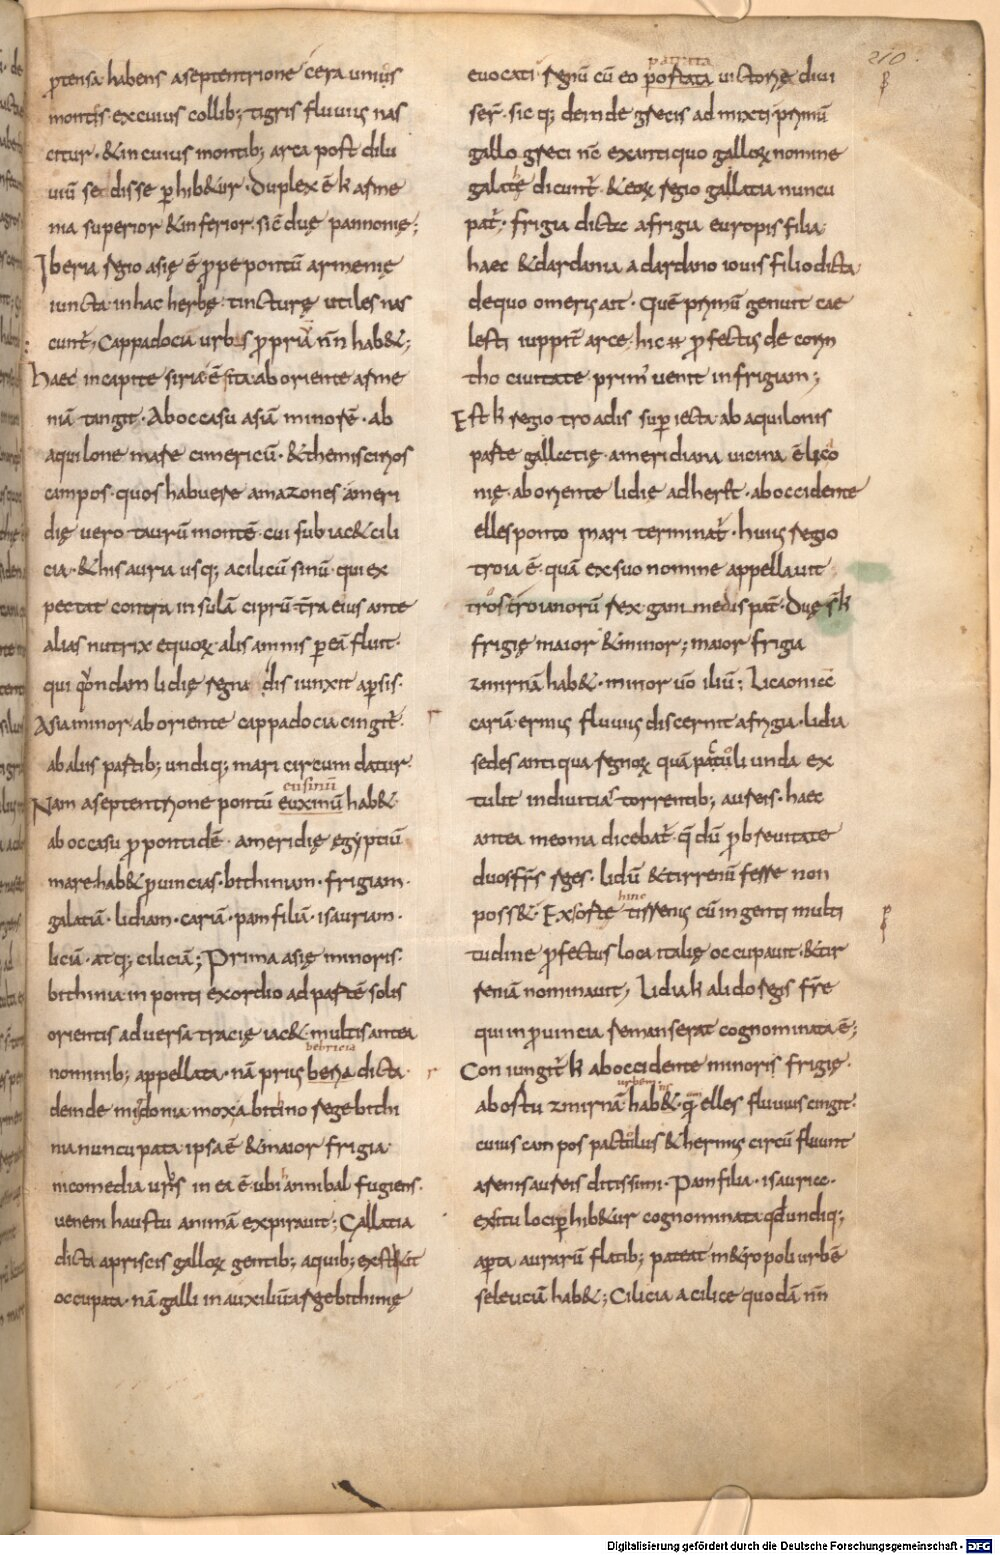 210.
ꝓtensa habens aseptentrione cera unius
montis· excuius collib; tigris fluuius nas
citur· &incuius montib; arca post dilu
uiū sedisse ꝑhib&ur· duplex ē k arme
nia superior &inferior· sič duę pannonię;
Iberia regio asię ē ꝓpe pontū armenię
iuncta· in hac herbę tincturę utiles nas
cunt̄· Cappadocia urbs ꝓpria nn̄ hab&;
Haec incapite siria ē sita ab oriente arme
niā tangit· Aboccasu asiā minorē· ab
aquilone mare cimericū· &themiscirios
campos· quos habuere amazones ameri
die uero taurū montē· cui subiac& cili
cia· &hisauria usq; acilicū sinū· qui ex
pectat contra insulā ciprū· tr̄a eius ante
alias nutrix equoꝝ· alis amnis ꝑ eā fluit·
qui qōndam lidię regna disiunxit apersis·
Asia minor aboriente cappadocia cingit̄·
abaliis partib; undiq; mari circum datur·
eusinū
Nam aseptentrione pontū euxinū hab&·
aboccasu ꝓpontidē· ameridie egyptiū
mare hab& ꝓuincias· bithiniam· frigiam·
galatiā· lidiam· cariā· pamfiliā· isauriam·
liciā· atq; ciliciā; Prima asię minoris·
bithinia in ponti exordio ad partē solis
orientis aduersa tracię iac& multis antea
bebricia
nominib; appellata· nā prius beria dicta·
deinde migdonia· moxa bithino rege bithi
nia nuncupata ipsa ē &maior frigia·
nicomedia urbs in ea ē· ubi annibal fugiens·
ueneni haustu animā expirauit; Gallatia
dicta apriscis galloꝝ gentib; aquib; extitit
occupata· nā galli inauxiliū arege bithinię
patrata
euocati regnū cū eo postata uictoria diui
ser̄· sicq; deinde grecis admixti primū
gallo greci nc̄ exantiquo galloꝝ nomine
galatę dicunt̄· &eoꝝ regio gallatia nuncu
pat̄· frigia dicta afrigia europis filia·
haec &dardania a dardano iouis filio dicta
dequo omerus ait· Quē primū genuit cae
lesti iuppit̄ arce· hic ꝓfectus de corin
tho ciuitate prim' uenit infrigiam;
Est k regio troadis suꝑiecta ab aquilonis
parte gallactię· ameridiana uicina ē lico
nię· aboriente lidię adheret· aboccidente
ellesponto mari terminat̄· huius regio
troia ē· quā exsuo nomine appellauit
tros troianorū rex ganimedis pat̄· Duę s̄ k
frigię maior &minor; maior frigia
zmirnā hab&· minor uō iliū; Licaonia
cariā· ermus fluuius discernit afrygia· lidia
sedes antiqua regnoꝝ quā pactoli unda ex
tulit indiuitias torrentib; aureis· haec
antea meonia dicebat̄· q̄dū ꝓ breuitate
duosfrs̄ reges· lidū &tirrenū ferre non
hinc
poss&· Exsorte tirrenus cū ingenti multi
tudine ꝓfectus loca italię occupauit· &tir
reniā nominauit; Lidia k alido regis fr̄e
qui inprouincia remanserat cognominata ē;
Coniungit̄ k aboccidente minoris frigię·
urbem
abostu zmirnā hab&· quā elles fluuius cingit·
cuius campos pactolus &hermus circū fluunt
arenis aureis ditissimi· Pamfilia· isauriae·
exsitu loci ꝑhib&ur cognominata qd undiq;
aꝑta aurarū flatib; pateat m&ropoli urbē
seleuciā hab&; Cilicia acilice quodā nn̄
Digitalisierung gefördert durch die Deutsche Forschungsgemeinschaft - DFG